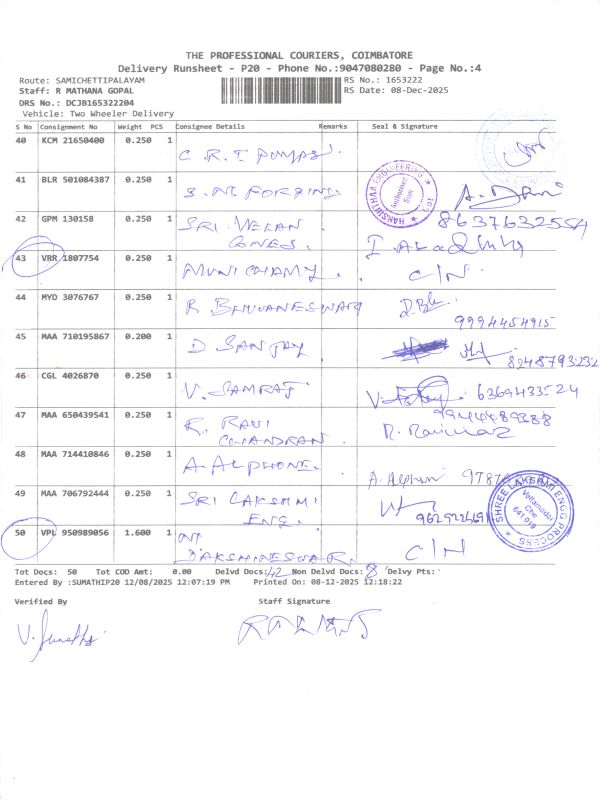 THE PROFESSIONAL COURIERS, COIMBATORE
Delivery Runsheet - P20 - Phone No.:9047080280 - Page No.:4
Route: SAMICHETTIPALAYAM RS No.: 1653222
Staff: R MATHANA GOPAL RS Date: 08-Dec-2025
DRS No.: DCJB165322204
Vehicle: Two Wheeler Delivery
S No Consignment No Weight PCS Consignee Details Remarks Seal & Signature
40 KCM 21650400 0.250 1 C.R.I PUMPS.
41 BLR 501084387 0.250 1 S.N. FORGING.
8637632554
42 GPM 130158 0.250 1 SRI VELAN
CONES.
43 VRR 1807754 0.250 1 MUNICHAMY. C/N
44 MYD 3076767 0.250 1 R BHUVANESWARI
9994454915
45 MAA 710195867 0.200 1 D SANJAY
8248793232
46 CGL 4026870 0.250 1 V. SAMRAJ 6369433524
47 MAA 650439541 0.250 1 R. RAVI
CHANDRAN
9944489388
48 MAA 714410846 0.250 1 A. ALPHONE. A. Alphon
49 MAA 706792444 0.250 1 SRI LAKSHMI
ENG.
SHREE LAKSHMI ENGG PROCESS
Vellamadai
Cbe
641 019
50 VPL 950989056 1.600 1 N
DAKSHINESWAR. C/N
Tot Docs: 50 Tot COD Amt: 0.00 Delvd Docs: 42 Non Delvd Docs: 8 Delvy Pts:
Entered By :SUMATHIP20 12/08/2025 12:07:19 PM Printed On: 08-12-2025 12:18:22
Verified By Staff Signature
V. Sumathi